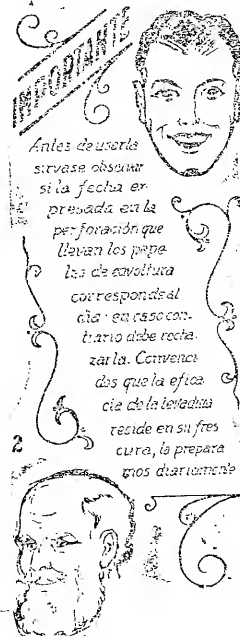 IMPORTANTE
Antes de usarla
sirvase observar
si la fecha ex-
presada en la
perforación que
llevan los pape-
les de envoltura
corresponde al
dia - en caso con-
trario debe recha-
zarla. Convenci-
dos que la efica-
cia de la levadura
reside en su fres-
cura, la prepara-
mos diariamente
2